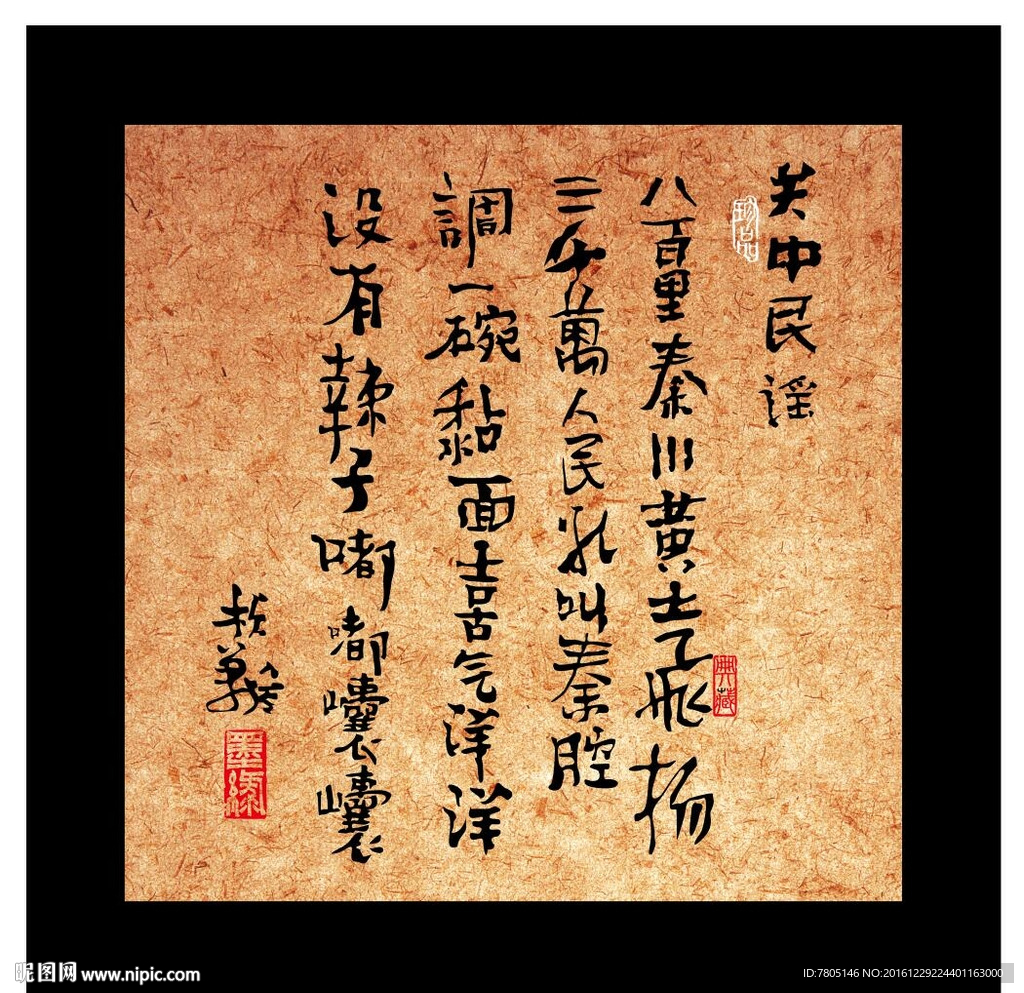 关中民谣
珍品
八百里秦川黃土飛扬
典藏
三千萬人民吼叫秦腔
調一碗黏面喜气洋洋
没有辣子嘟嘟囔囔
墨缘
昵图网 www.nipic.com
ID:7805146 NO:20161229224401163000